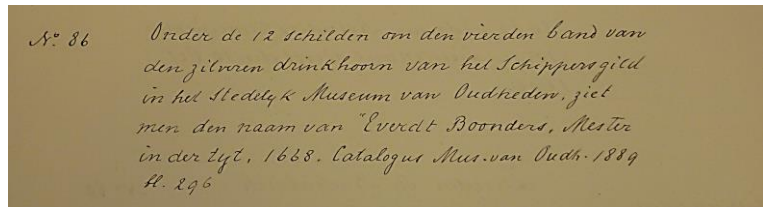 No. 86 Onder de 12 schilden om den vierden band van
den zilveren drinkhoorn van het Schippersgild
in het Stedelyk Museum van Oudheden, ziet
men den naam van "Everdt Boonders, Mester
in der tyt, 1668. Catalogus Mus. van Oudh. 1889
bl. 296